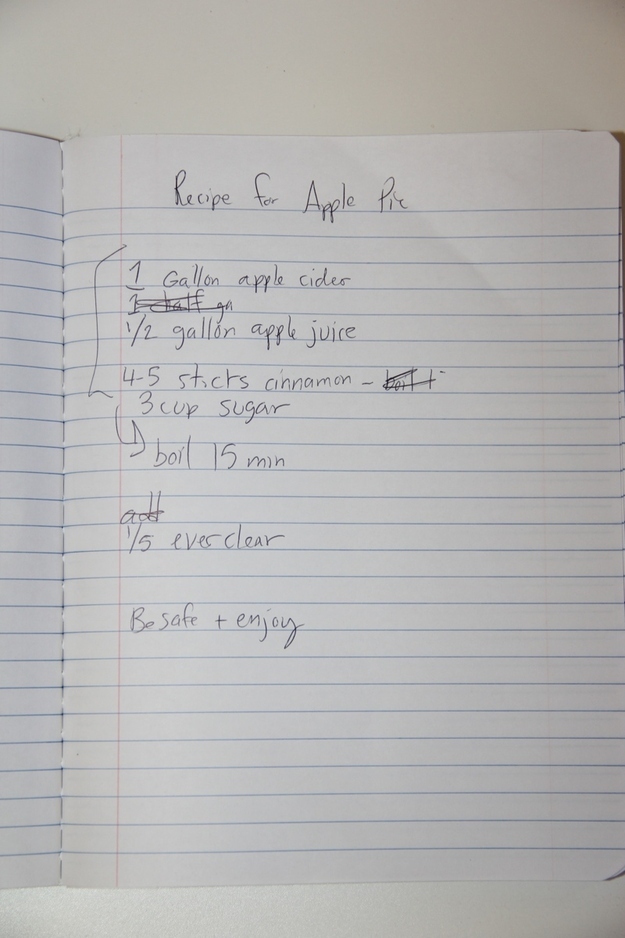 Recipe for Apple Pie
1 Gallon apple cider
1/2 gallon apple juice
4-5 sticks cinnamon -
3 cup sugar
boil 15 min
add
1/5 everclear
Be safe + enjoy